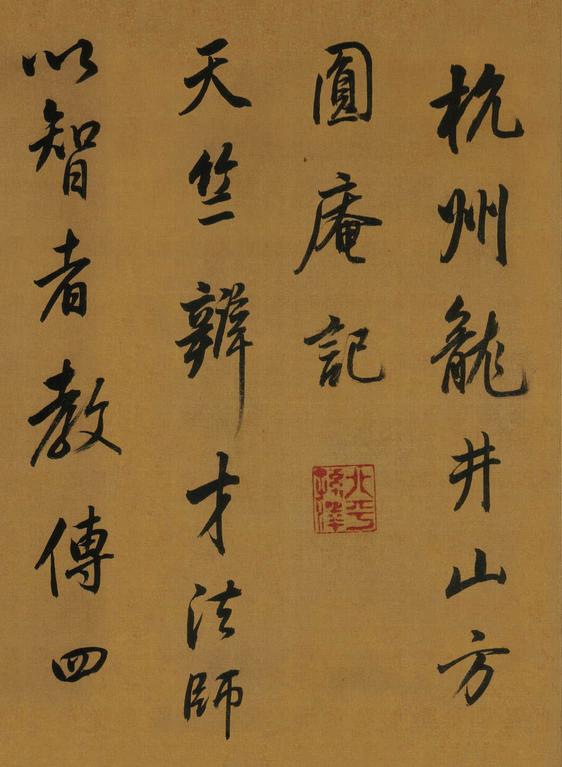 杭州龍井山方
圓庵記
天竺辯才法師
以智者教傳四
北平孫澤